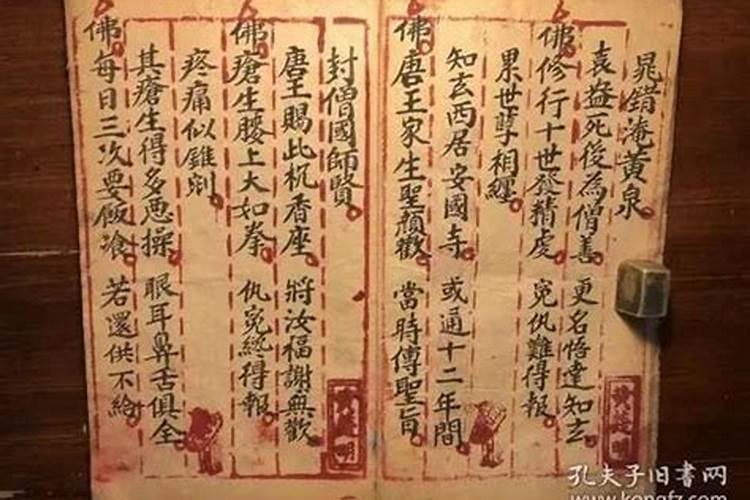 晁錯淹黄泉
袁盎死後為僧善 更名悟達知玄
佛修行十世發精虔 冤仇難得報
累世孽相纏
知玄西居安國寺 或通十二年間
佛唐王家生聖顏歡 當時傳聖旨
封僧國師賢
唐王賜此杌香座 將汝福謝無歡
佛瘡生腰上大如拳 仇冤終得報
疼痛似錐剜
其瘡生得多恶操 眼耳鼻舌俱全
佛每日三次要飯飡 若還供不給
孔夫子旧书网